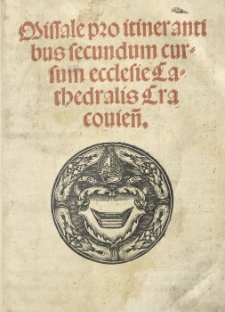 Missale pro itineranti
bus secundum cur-
sum ecclesie Ca-
thedralis Cra
covieñ.